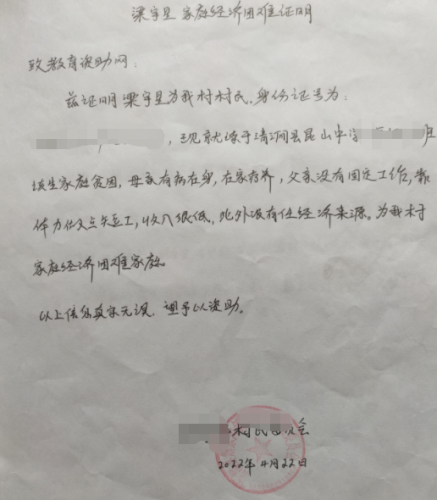 梁宇星 家庭经济困难证明
致教育资助网：
兹证明梁宇星为我村村民。身份证号为：
，现就读于清涧县昆山中学 班
该生家庭贫困，母亲有病在身，在家疗养，父亲没有固定工作，靠
体力做点短工，收入很低，此外没有任经济来源。为我村
家庭经济困难家庭。
以上信息真实无误，望予以资助。
村民委员会
2022年4月22日